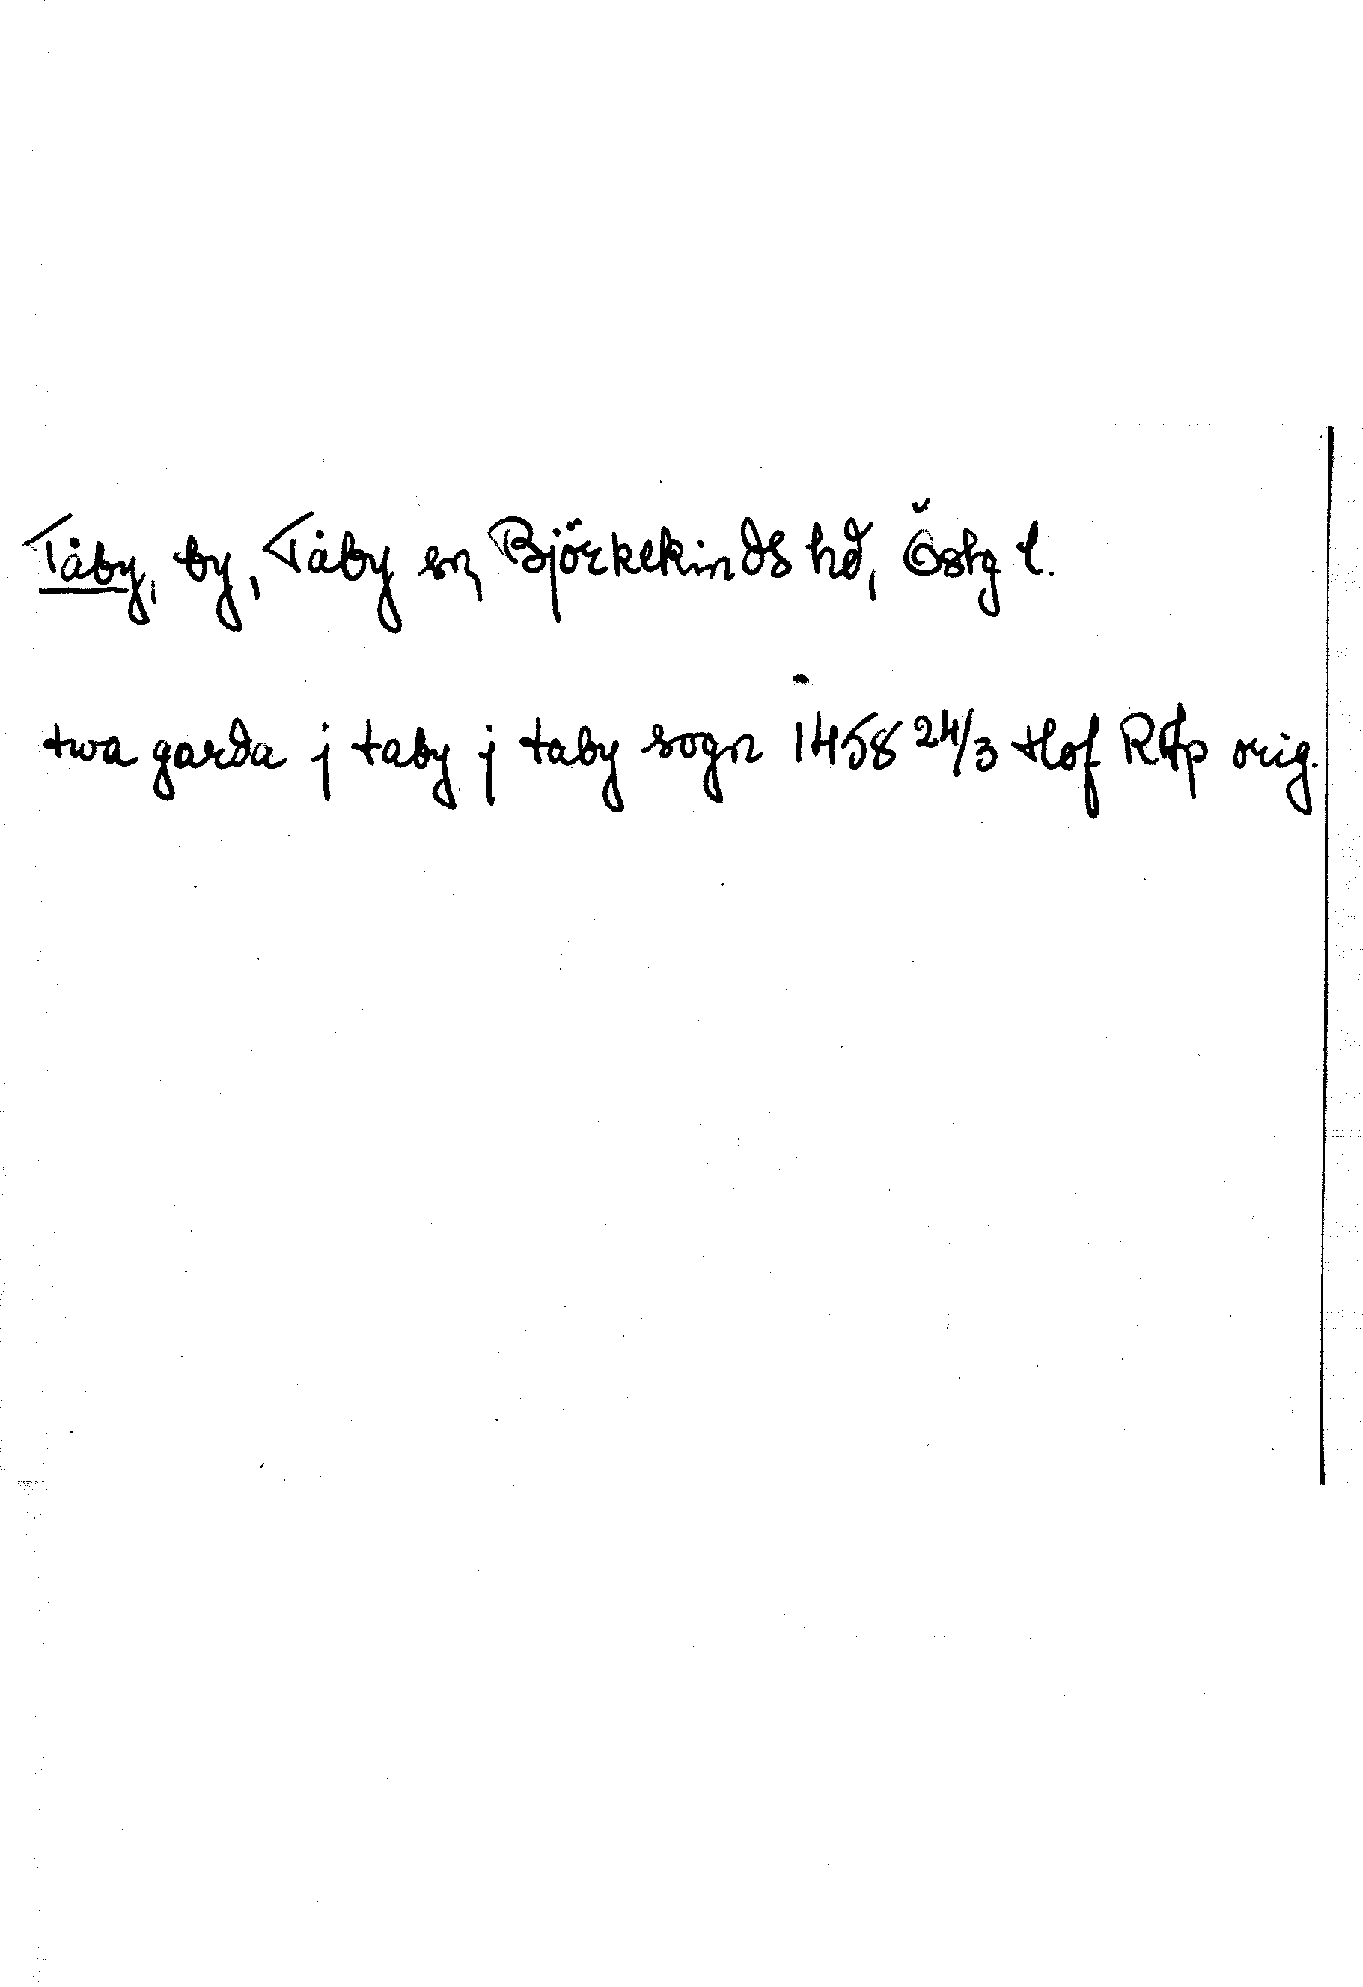 Tåby, by, Tåby sn, Björkekinds hd, Östg l.
twa garda j taby j taby sogn 1458 24/3 Hof RAp orig.